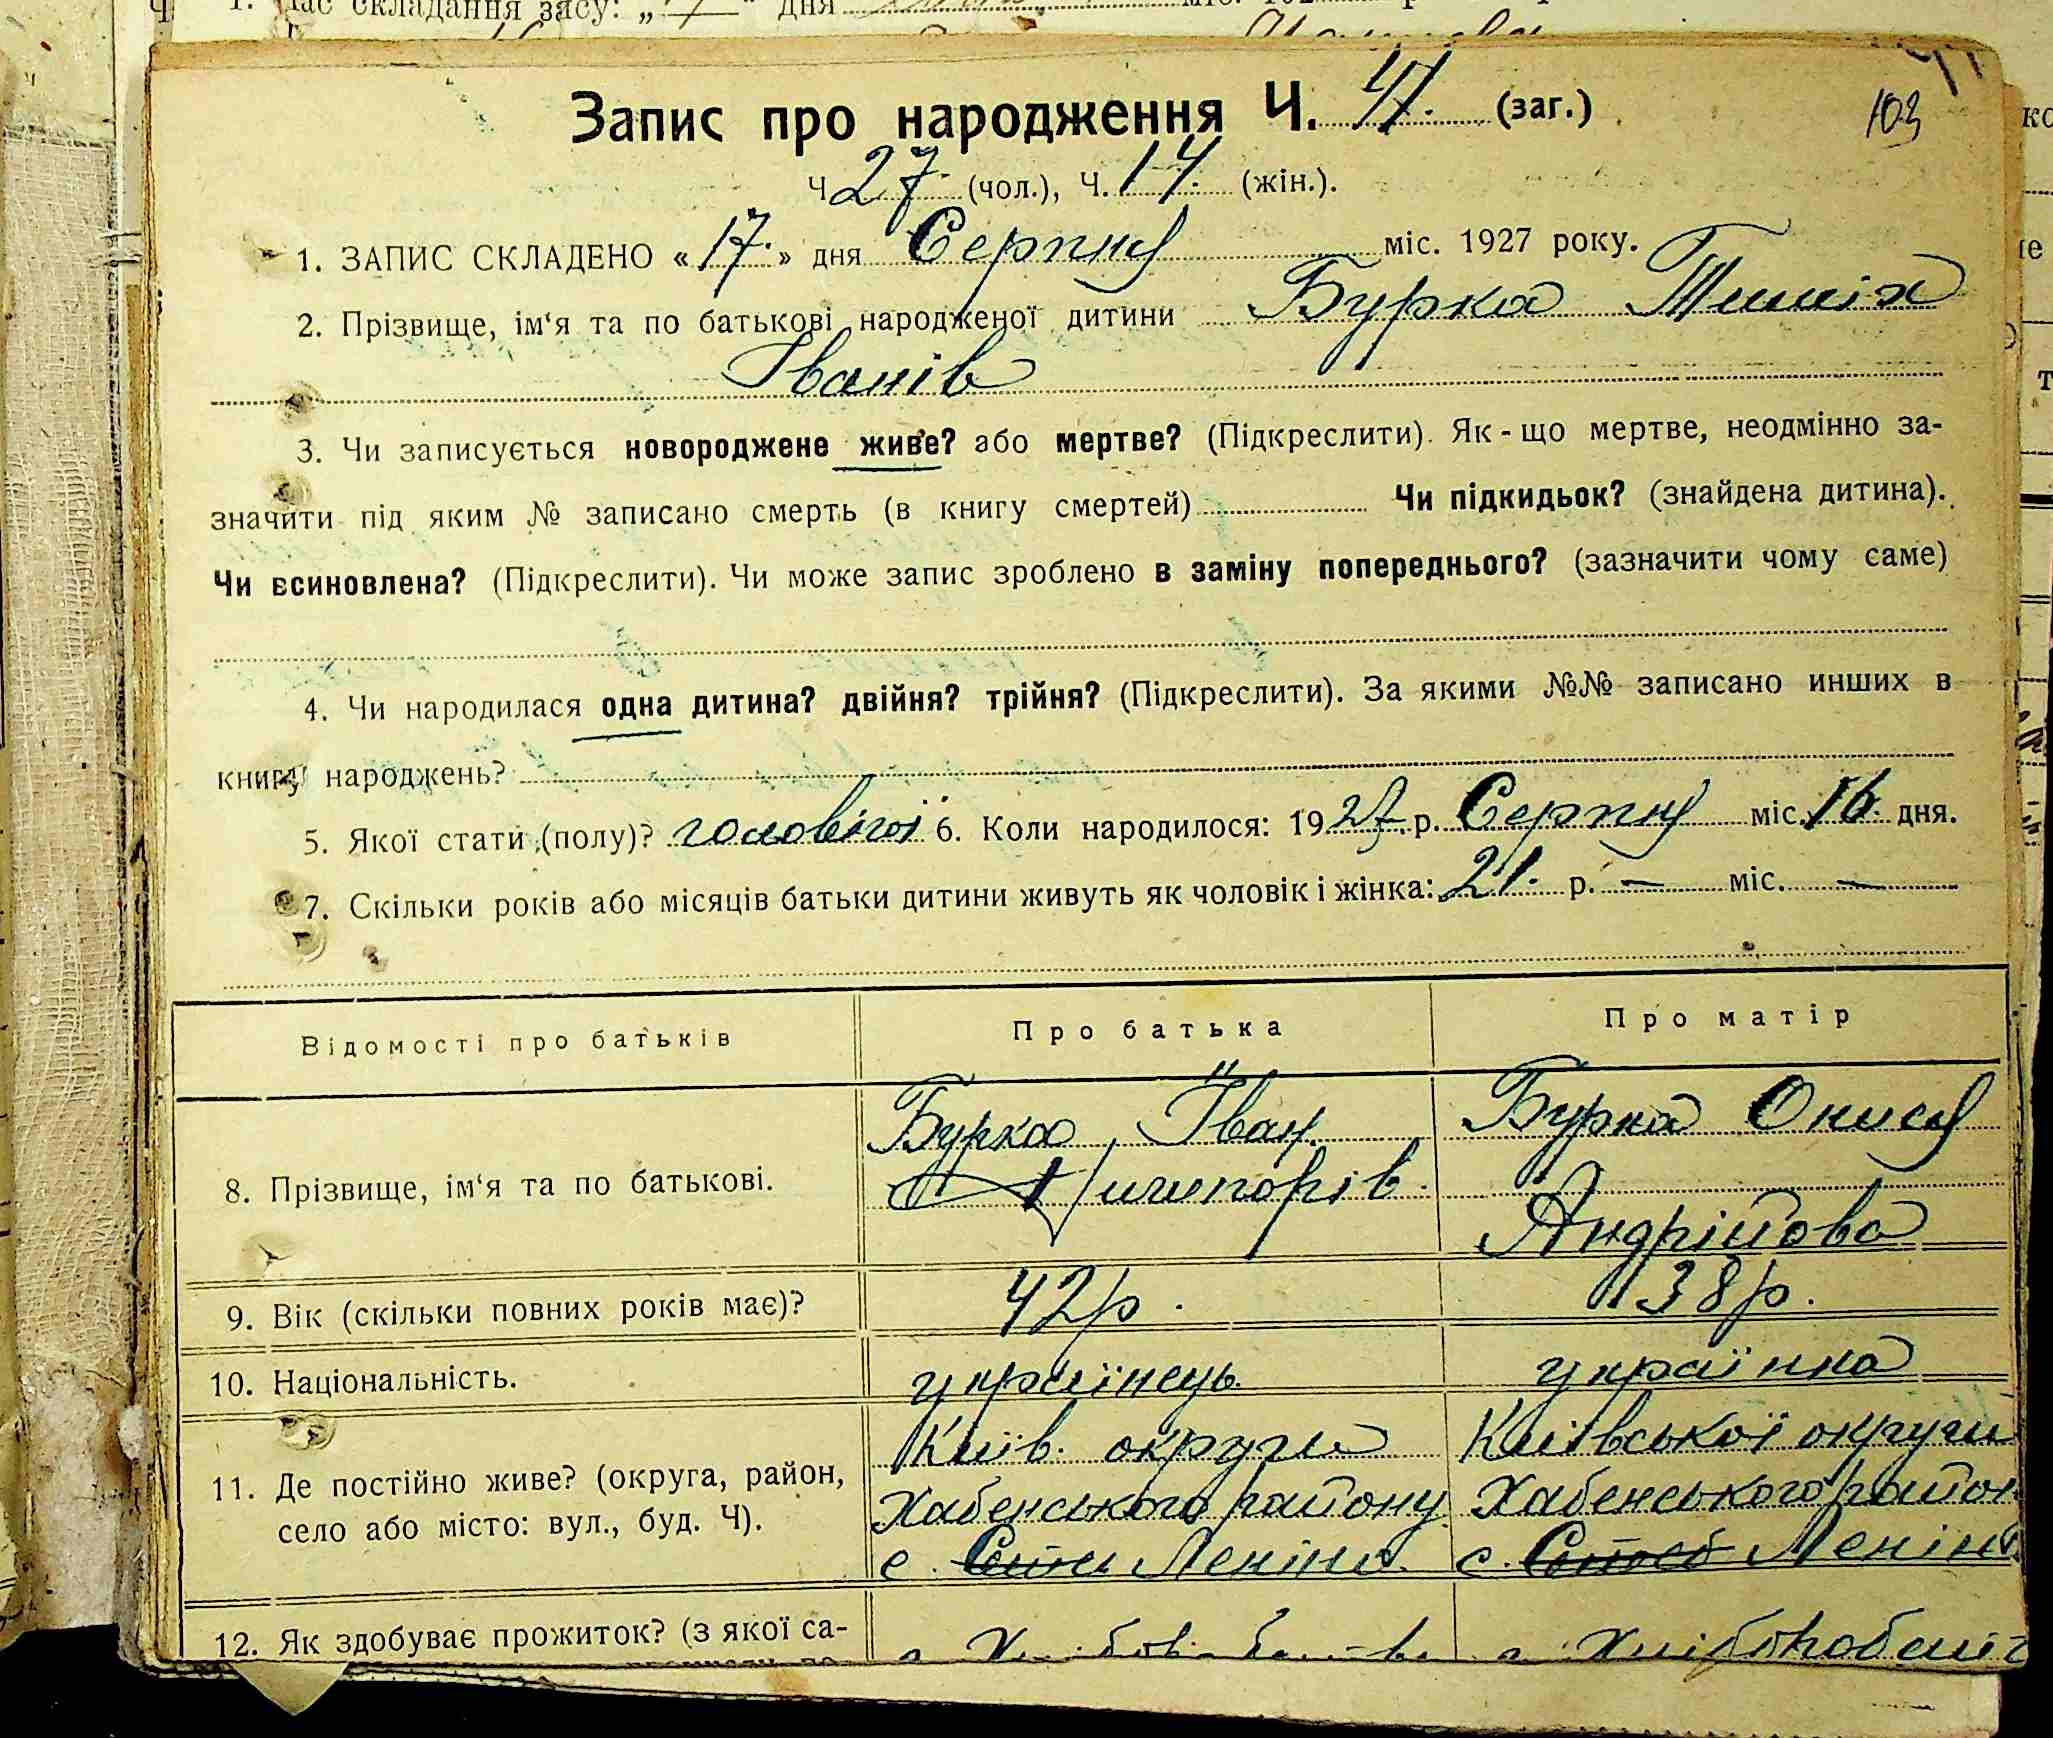 Запис про народження Ч. 41. (заг.)
103
Ч 27. (чол.), Ч. 14. (жін.).
1. ЗАПИС СКЛАДЕНО «17.» дня Серпня міс. 1927 року.
2. Прізвище, ім‘я та по батькові народженої дитини Бурка
Іванів
3. Чи записується новороджене живе? або мертве? (Підкреслити). Як-що мертве, неодмінно за-
значити під яким № записано смерть (в книгу смертей) Чи підкидьок? (знайдена дитина).
Чи всиновлена? (Підкреслити). Чи може запис зроблено в заміну попереднього? (зазначити чому саме)
4. Чи народилася одна дитина? двійня? трійня? (Підкреслити). За якими №№ записано инших в
книгу народжень?
5. Якої стати (полу)? чоловічої 6. Коли народилося: 1927. р. Серпня міс. 16. дня.
7. Скільки років або місяців батьки дитини живуть як чоловік і жінка: 21. р. — міс. —
Відомості про батьків Про батька Про матір
8. Прізвище, ім‘я та по батькові. Бурка Іван Бурка Онися
Ничипорів. Андрійова
9. Вік (скільки повних років має)? 42 р. 38 р.
10. Національність. українець. українка
11. Де постійно живе? (округа, район, село або місто: вул., буд. Ч). Київ. округи Київської округи
Хабенського району Хабенського район
с. Леніна с. Ленін
12. Як здобуває прожиток? (з якої са-